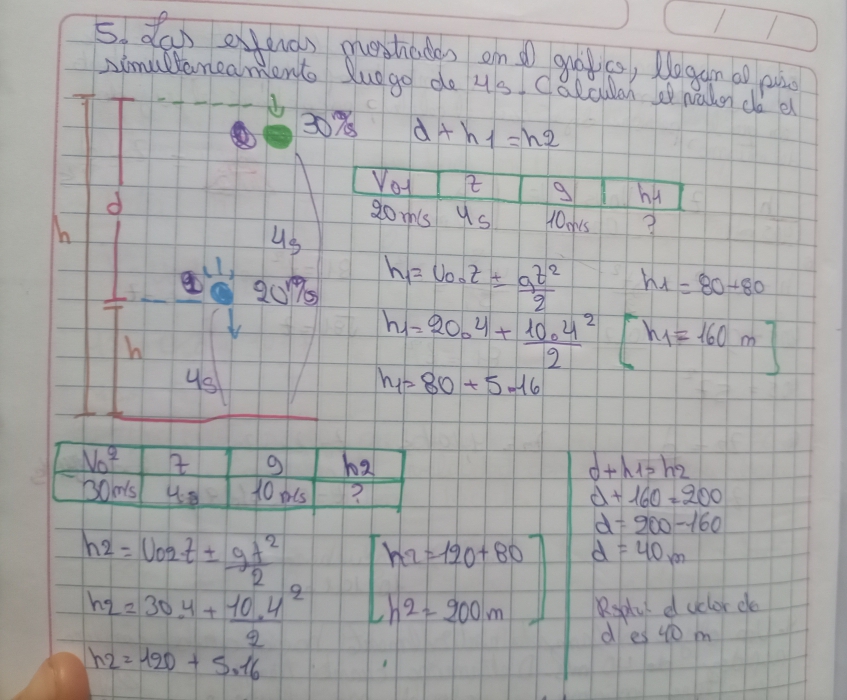 5. Las esferas mostradas en el gráfico, llegan al piso
simultaneamente luego de 4s. Calcular el valor de d
30m/s
d + h1 = h2
d
h
4s
20m/s
h
4s
Vo1 t g h1
20m/s 4s 10m/s ?
h1 = Vo.t ± gt²/2
h1 = 20.4 + 10.4²/2
h1 = 80 + 5.16
h1 = 80+80
h1 = 160 m
Vo² t g h2
30m/s 4s 10m/s ?
h2 = Vo2t ± gt²/2
h2 = 30.4 + 10.4²/2
h2 = 120 + 5.16
h2 = 120+80
h2 = 200m
d+h1=h2
d+160=200
d=200-160
d=40m
el valor de
d es 40 m